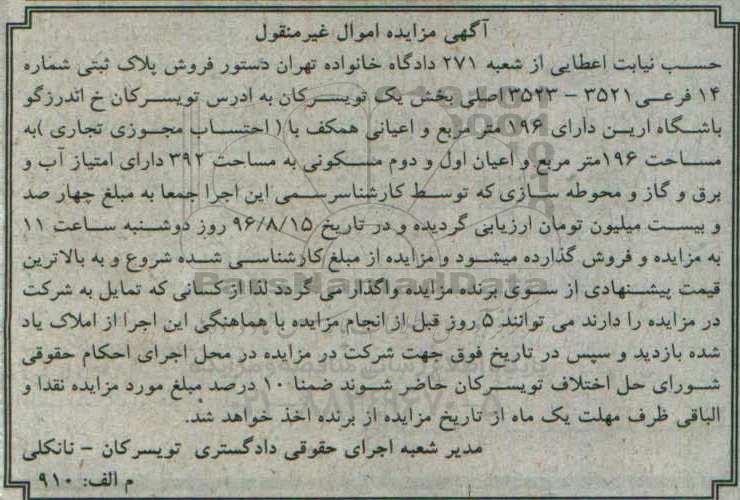 آگهی مزایده اموال غیرمنقول
حسب نیابت اعطایی از شعبه ۲۷۱ دادگاه خانواده تهران دستور فروش پلاک ثبتی شماره
۱۴ فرعی ۳۵۲۱ - ۳۵۲۳ اصلی بخش یک تویسرکان به ادرس تویسرکان خ اندرزگو
باشگاه ارین دارای ۱۹۶ متر مربع و اعیانی همکف با ( احتساب مجوزی تجاری )به
مساحت ۱۹۶متر مربع و اعیان اول و دوم مسکونی به مساحت ۳۹۲ دارای امتیاز آب و
برق و گاز و محوطه سازی که توسط کارشناسرسمی این اجرا جمعا به مبلغ چهار صد
و بیست میلیون تومان ارزیابی گردیده و در تاریخ ۹۶/۸/۱۵ روز دوشنبه ساعت ۱۱
به مزایده و فروش گذارده میشود و مزایده از مبلغ کارشناسی شده شروع و به بالاترین
قیمت پیشنهادی از سوی برنده مزایده واگذار می گردد لذا از کسانی که تمایل به شرکت
در مزایده را دارند می توانند ۵ روز قبل از انجام مزایده با هماهنگی این اجرا از املاک یاد
شده بازدید و سپس در تاریخ فوق جهت شرکت در مزایده در محل اجرای احکام حقوقی
شورای حل اختلاف تویسرکان حاضر شوند ضمنا ۱۰ درصد مبلغ مورد مزایده نقدا و
الباقی ظرف مهلت یک ماه از تاریخ مزایده از برنده اخذ خواهد شد.
مدیر شعبه اجرای حقوقی دادگستری تویسرکان - نانکلی
م الف: ۹۱۰
ParsNamadData